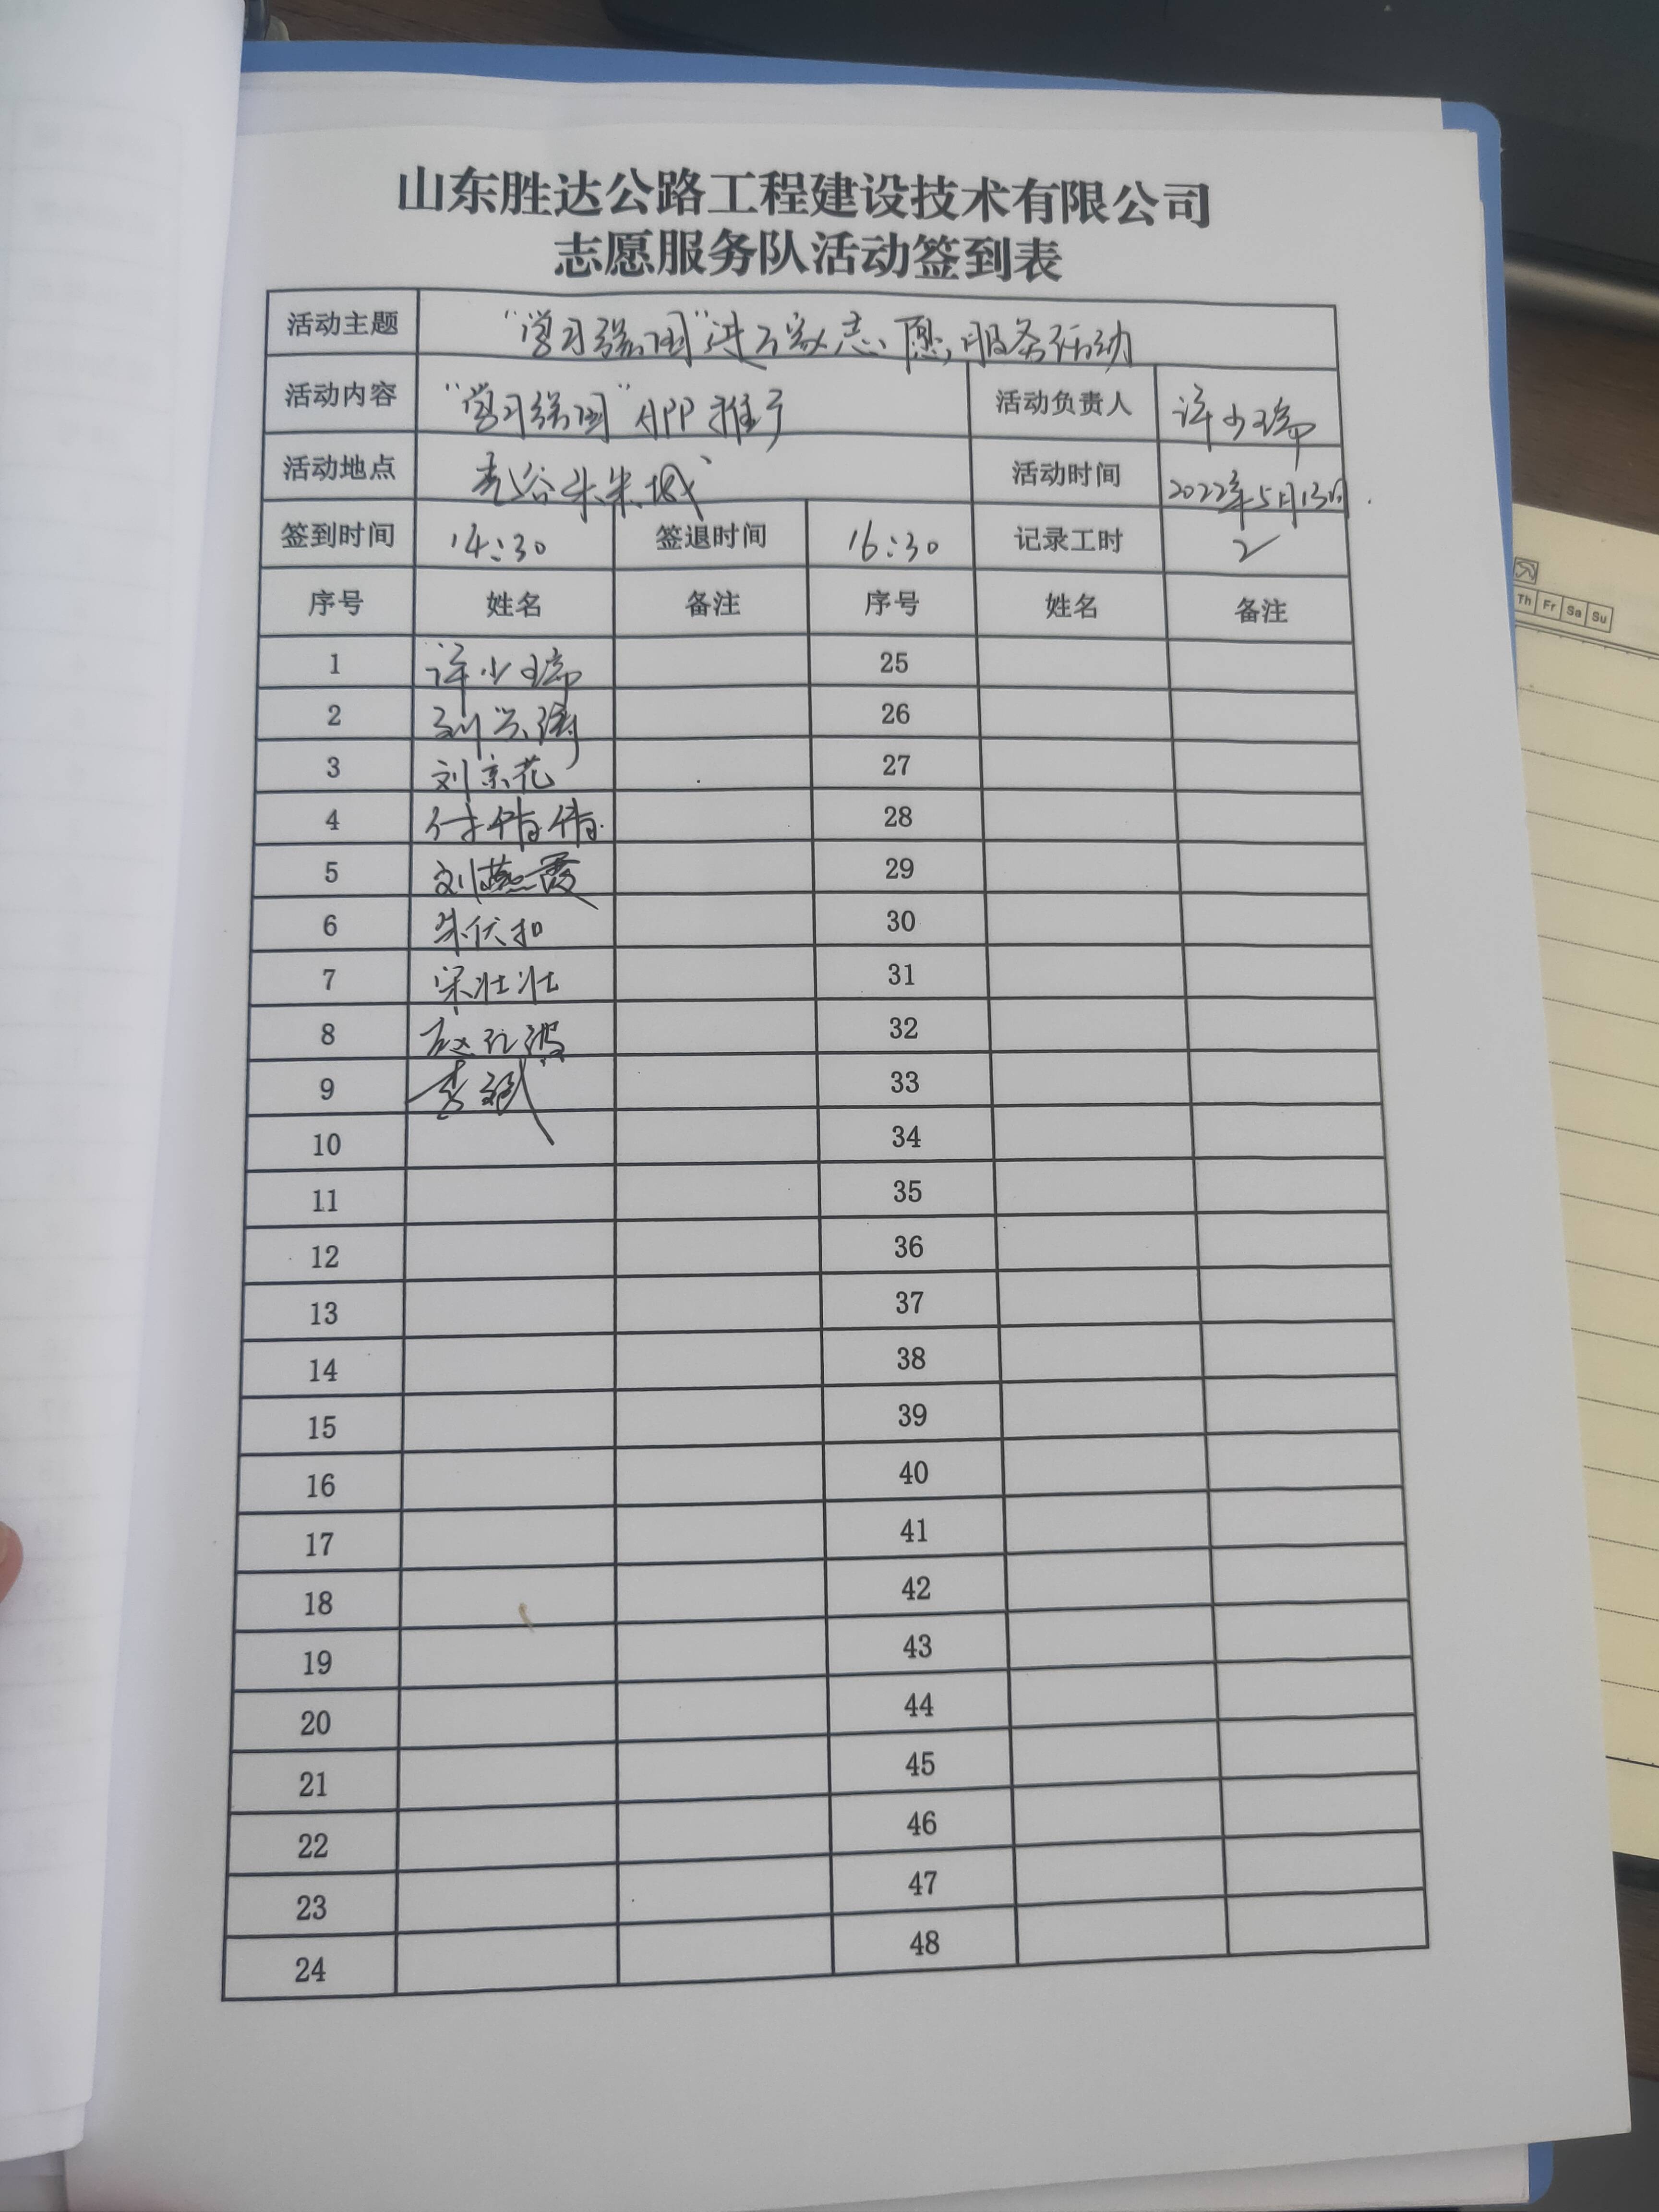 山东胜达公路工程建设技术有限公司
志愿服务队活动签到表
活动主题 “学习强国”进万家志愿服务活动
活动内容 “学习强国”APP推广 活动负责人 许少瑞
活动地点 活动时间 2022年5月13日
签到时间 14:30 签退时间 16:30 记录工时 2
序号 姓名 备注 序号 姓名 备注
1 许少瑞 25
2 刘兴涛 26
3 刘京花 27
4 付倩倩 28
5 刘燕霞 29
6 30
7 宋壮壮 31
8 32
9 李斌 33
10 34
11 35
12 36
13 37
14 38
15 39
16 40
17 41
18 42
19 43
20 44
21 45
22 46
23 47
24 48
Th Fr Sa Su